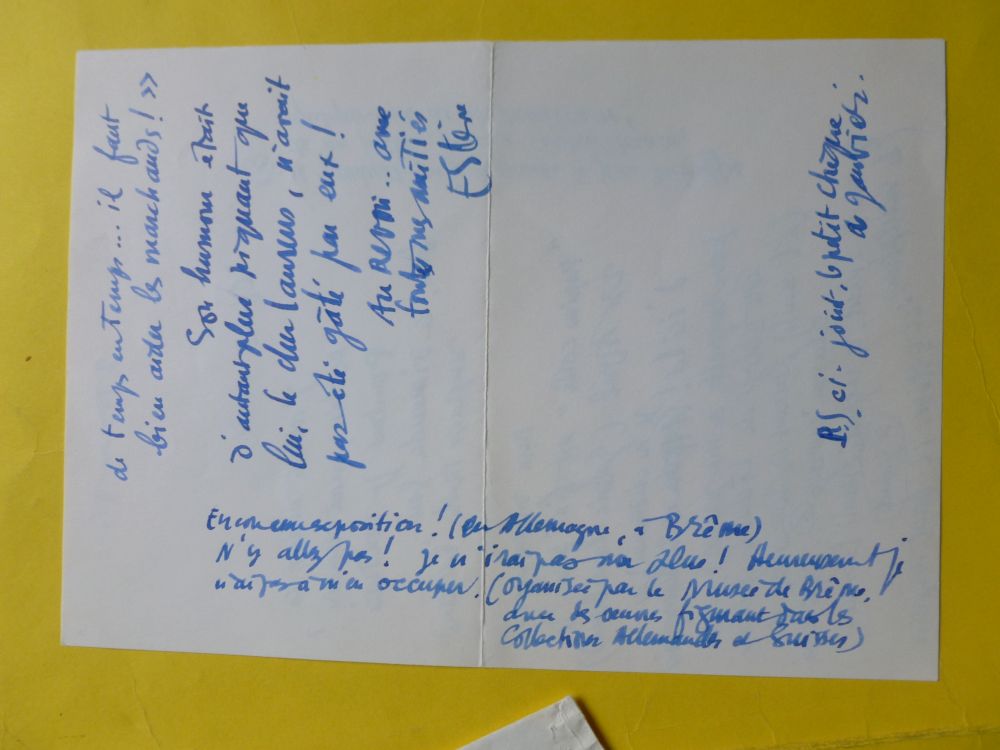 de temps en temps... il faut
bien aider les marchands! »
Son humour était
d'autant plus piquant que
lui, le cher Laurens, n'avait
pas été gâté par eux!
Au Revoir... avec
toutes mes amitiés
Estève
P.S. ci-joint, le petit chèque
de Janvier.
Encore une exposition! (en Allemagne, à Brême)
N'y allez pas! je n'irai pas non plus! Heureusement je
n'ai pas à m'en occuper. (organisée par le Musée de Brême,
avec des œuvres figurant dans les
Collections Allemandes et Suisses)